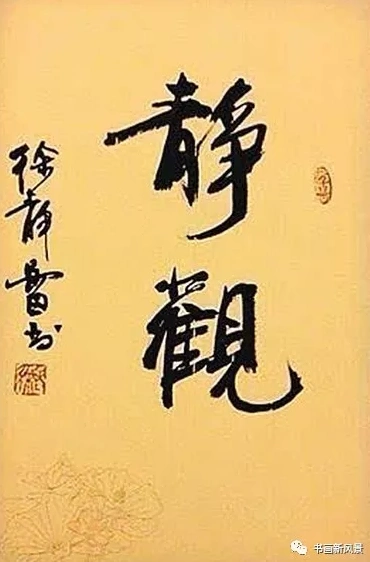 靜觀
徐静蕾书
书画新风景